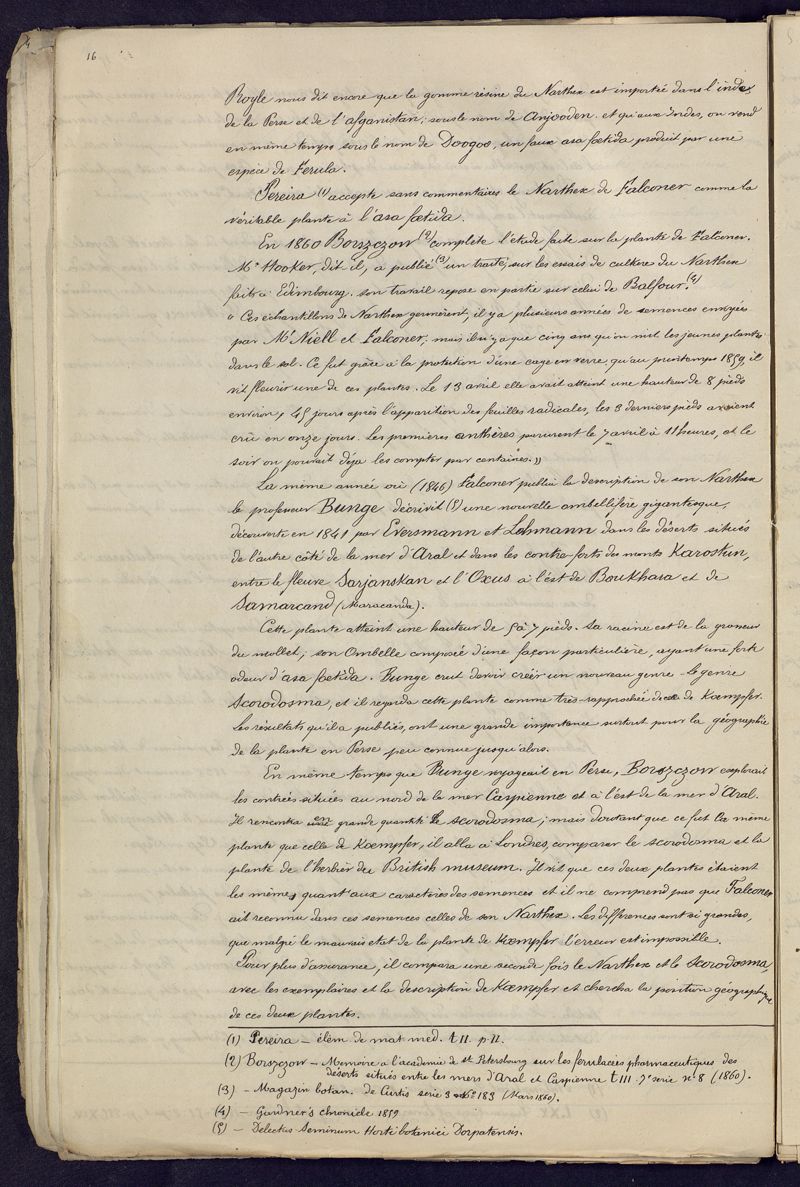 16
Royle nous dit encore que la gomme résine du Narthex est importée dans l'inde
de la Perse et de l'afganistan; sous le nom de Anjooden. et qu'aux Indes, on vend
en même temps sous le nom de Doogoo, un faux asa fœtida produit par une
espèce de Ferula.
Pereira (1) accepte sans commentaires le Narthex de Falconer comme la
véritable plante à l'asa fœtida.
En 1860 Borszczow (2) complète l'étude faite sur la plante de Falconer.
Mr Hooker, dit il, a publié (3) un traité, sur les essais de culture du Narthex
faits à Edimbourg. son travail repose en partie sur celui de Balfour. (4)
" Ces échantillons de Narthex germèrent, il y a plusieurs années de semences envoyées
par Mr Niell et Falconer; mais il n'y a que cinq ans qu'on mit les jeunes plantes
dans le sol. Ce fut grâce à la protection d'une cage en verre, qu'au printemps 1859, il
vit fleurir une de ces plantes. Le 13 avril elle avait atteint une hauteur de 8 pieds
environ, 45 jours après l'apparition des feuilles radicales, les 3 derniers pieds avaient
crû en onze jours. Les premières anthères parurent le 7 avril à 11 heures, et le
soir on pouvait déja les compter par centaines. "
La même année où (1846) Falconer, publiait la description de son Narthex
le professeur Bunge décrivit (5) une nouvelle ombellifère gigantesque,
découverte en 1841 par Eversmann et Lehmann dans les déserts situés
de l'autre côté de la mer d'Aral et dans les contre-forts des monts Karostun,
entre le fleuve Sarjanskan et l'Oxus à l'est de Boukhara et de
Samarcand (Maracanda).
Cette plante atteint une hauteur de 5 à 7 pieds. Sa racine est de la grosseur
du mollet; son Ombelle composée d'une façon particulière, ayant une forte
odeur d'asa fœtida. Bunge crut devoir créér un nouveau genre le genre
Scorodosma, et il regarda cette plante comme très-rapprochée de celle de Kœmpfer.
Les résultats qu'il a publiés, ont une grande importance surtout pour la géographie
de la plante en Perse peu connue jusqu'alors.
En même temps que Bunge voyageait en Perse, Borszczow explorait
les contrées situées au nord de la mer Caspienne et à l'est de la mer d'Aral.
Il rencontra en grande quantité le scorodosma; mais doutant que ce fut la même
plante que celle de Kœmpfer, il alla à Londres, comparer le scorodosma et la
plante de l'herbier du British museum. Il vit que ces deux plantes étaient
les mêmes, quant aux caractères des semences et il ne comprend pas que Falconer
ait reconnu dans ces semences celles de son Narthex. Les différences sont si grandes,
que malgré le mauvais état de la plante de Kœmpfer l'erreur est impossible.
Pour plus d'assurance, il compara une seconde fois le Narthex et le Scorodosma,
avec les exemplaires et la description de Kœmpfer et chercha la position géographique
de ces deux plantes.
(1) Pereira – élém. de mat med. t II. p II.
(2) Borszczow – Memoire à l'academie de st Petersbourg sur les ferulacées pharmaceutiques des
déserts situés entre les mers d'Aral et Caspienne t III 7e serie no 8 (1860).
(3) – Magazin botan. de Curtis serie 3 No 183 (Mars 1860).
(4) – Gardner's chronicle 1859
(5) – Delectus Seminum Horti botanici Dorpatensis.